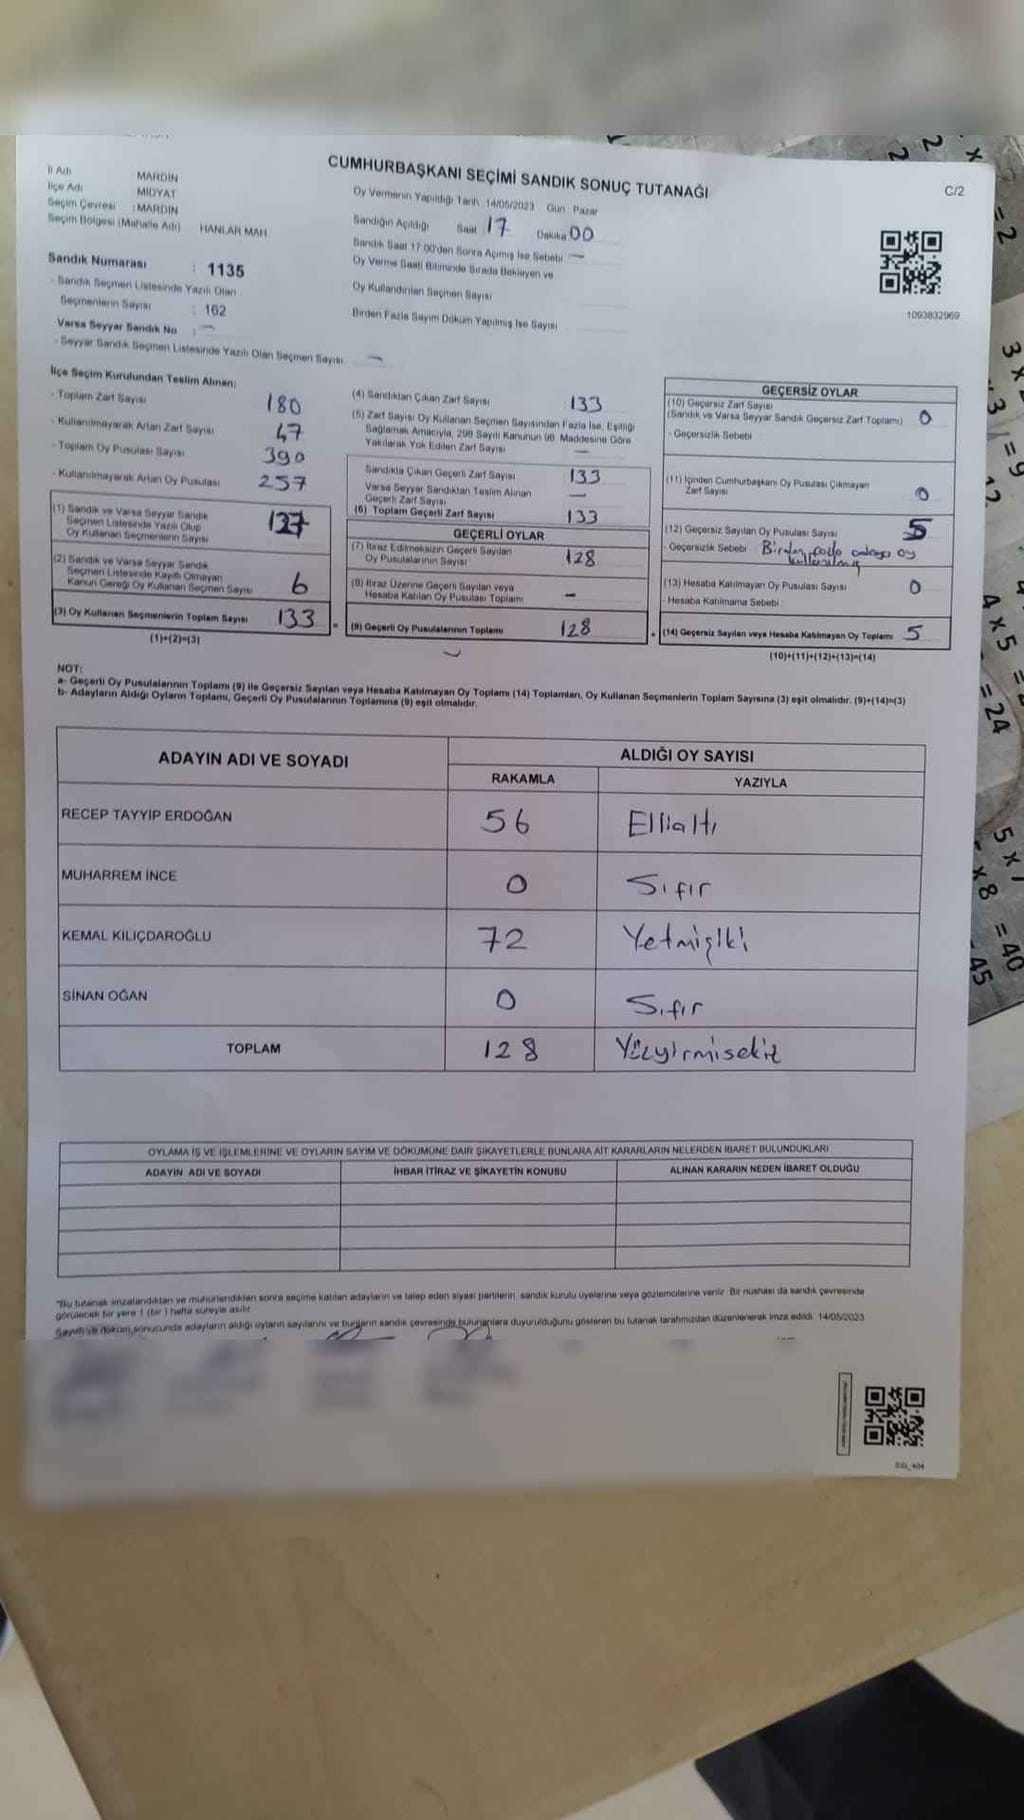 CUMHURBAŞKANI SEÇİMİ SANDIK SONUÇ TUTANAĞI
C/2
İl Adı MARDİN
İlçe Adı MİDYAT
Seçim Çevresi : MARDİN
Seçim Bölgesi (Mahalle Adı) HANLAR MAH
Oy Vermenin Yapıldığı Tarih 14/05/2023 Gün Pazar
Sandığın Açıldığı Saat 17 Dakika 00
Sandık Saat 17:00'den Sonra Açılmış İse Sebebi —
Oy Verme Saati Bitiminde Sırada Bekleyen ve
Oy Kullandırılan Seçmen Sayısı
Birden Fazla Sayım Döküm Yapılmış İse Sayısı
1093832969
Sandık Numarası : 1135
- Sandık Seçmen Listesinde Yazılı Olan
Seçmenlerin Sayısı : 162
Varsa Seyyar Sandık No : —
- Seyyar Sandık Seçmen Listesinde Yazılı Olan Seçmen Sayısı —
İlçe Seçim Kurulundan Teslim Alınan;
- Toplam Zarf Sayısı 180
- Kullanılmayarak Artan Zarf Sayısı 47
- Toplam Oy Pusulası Sayısı 390
- Kullanılmayarak Artan Oy Pusulası 257
(1) Sandık ve Varsa Seyyar Sandık
Seçmen Listesinde Yazılı Olup
Oy Kullanan Seçmenlerin Sayısı 127
(2) Sandık ve Varsa Seyyar Sandık
Seçmen Listesinde Kayıtlı Olmayan
Kanun Gereği Oy Kullanan Seçmen Sayısı 6
(3) Oy Kullanan Seçmenlerin Toplam Sayısı 133 =
(1)+(2)=(3)
(4) Sandıktan Çıkan Zarf Sayısı : 133
(5) Zarf Sayısı Oy Kullanan Seçmen Sayısından Fazla İse, Eşitliği
Sağlamak Amacıyla, 298 Sayılı Kanunun 98. Maddesine Göre
Yakılarak Yok Edilen Zarf Sayısı —
Sandıkta Çıkan Geçerli Zarf Sayısı 133
Varsa Seyyar Sandıktan Teslim Alınan
Geçerli Zarf Sayısı —
(6) Toplam Geçerli Zarf Sayısı 133
GEÇERLİ OYLAR
(7) İtiraz Edilmeksizin Geçerli Sayılan
Oy Pusulalarının Sayısı 128
(8) İtiraz Üzerine Geçerli Sayılan veya
Hesaba Katılan Oy Pusulası Toplamı —
(9) Geçerli Oy Pusulalarının Toplamı 128 +
GEÇERSİZ OYLAR
(10) Geçersiz Zarf Sayısı
(Sandık ve Varsa Seyyar Sandık Geçersiz Zarf Toplamı) 0
- Geçersizlik Sebebi :
(11) İçinden Cumhurbaşkanı Oy Pusulası Çıkmayan
Zarf Sayısı 0
(12) Geçersiz Sayılan Oy Pusulası Sayısı 5
- Geçersizlik Sebebi Birden fazla oy
kullanılmış
(13) Hesaba Katılmayan Oy Pusulası Sayısı 0
- Hesaba Katılmama Sebebi
(14) Geçersiz Sayılan veya Hesaba Katılmayan Oy Toplamı 5
(10)+(11)+(12)+(13)=(14)
NOT:
a- Geçerli Oy Pusulalarının Toplamı (9) ile Geçersiz Sayılan veya Hesaba Katılmayan Oy Toplamı (14) Toplamları, Oy Kullanan Seçmenlerin Toplam Sayısına (3) eşit olmalıdır. (9)+(14)=(3)
b- Adayların Aldığı Oyların Toplamı, Geçerli Oy Pusulalarının Toplamına (9) eşit olmalıdır.
ADAYIN ADI VE SOYADI ALDIĞI OY SAYISI
RAKAMLA YAZIYLA
RECEP TAYYİP ERDOĞAN 56 Ellialtı
MUHARREM İNCE 0 Sıfır
KEMAL KILIÇDAROĞLU 72 Yetmişiki
SİNAN OĞAN 0 Sıfır
TOPLAM 128 Yüzyirmisekiz
OYLAMA İŞ VE İŞLEMLERİNE VE OYLARIN SAYIM VE DÖKÜMÜNE DAİR ŞİKAYETLERLE BUNLARA AİT KARARLARIN NELERDEN İBARET BULUNDUKLARI
ADAYIN ADI VE SOYADI İHBAR İTİRAZ VE ŞİKAYETİN KONUSU ALINAN KARARIN NEDEN İBARET OLDUĞU
"Bu tutanak imzalandıktan ve mühürlendikten sonra seçime katılan adayların ve talep eden siyasi partilerin, sandık kurulu üyelerine veya gözlemcilerine verilir. Bir nüshası da sandık çevresinde
görülecek bir yere 1 (bir) hafta süreyle asılır.
Sayım ve döküm sonucunda adayların aldığı oyların sayılarını ve bunların sandık çevresinde bulunanlara duyurulduğunu gösteren bu tutanak tarafımızdan düzenlenerek imza edildi. 14/05/2023